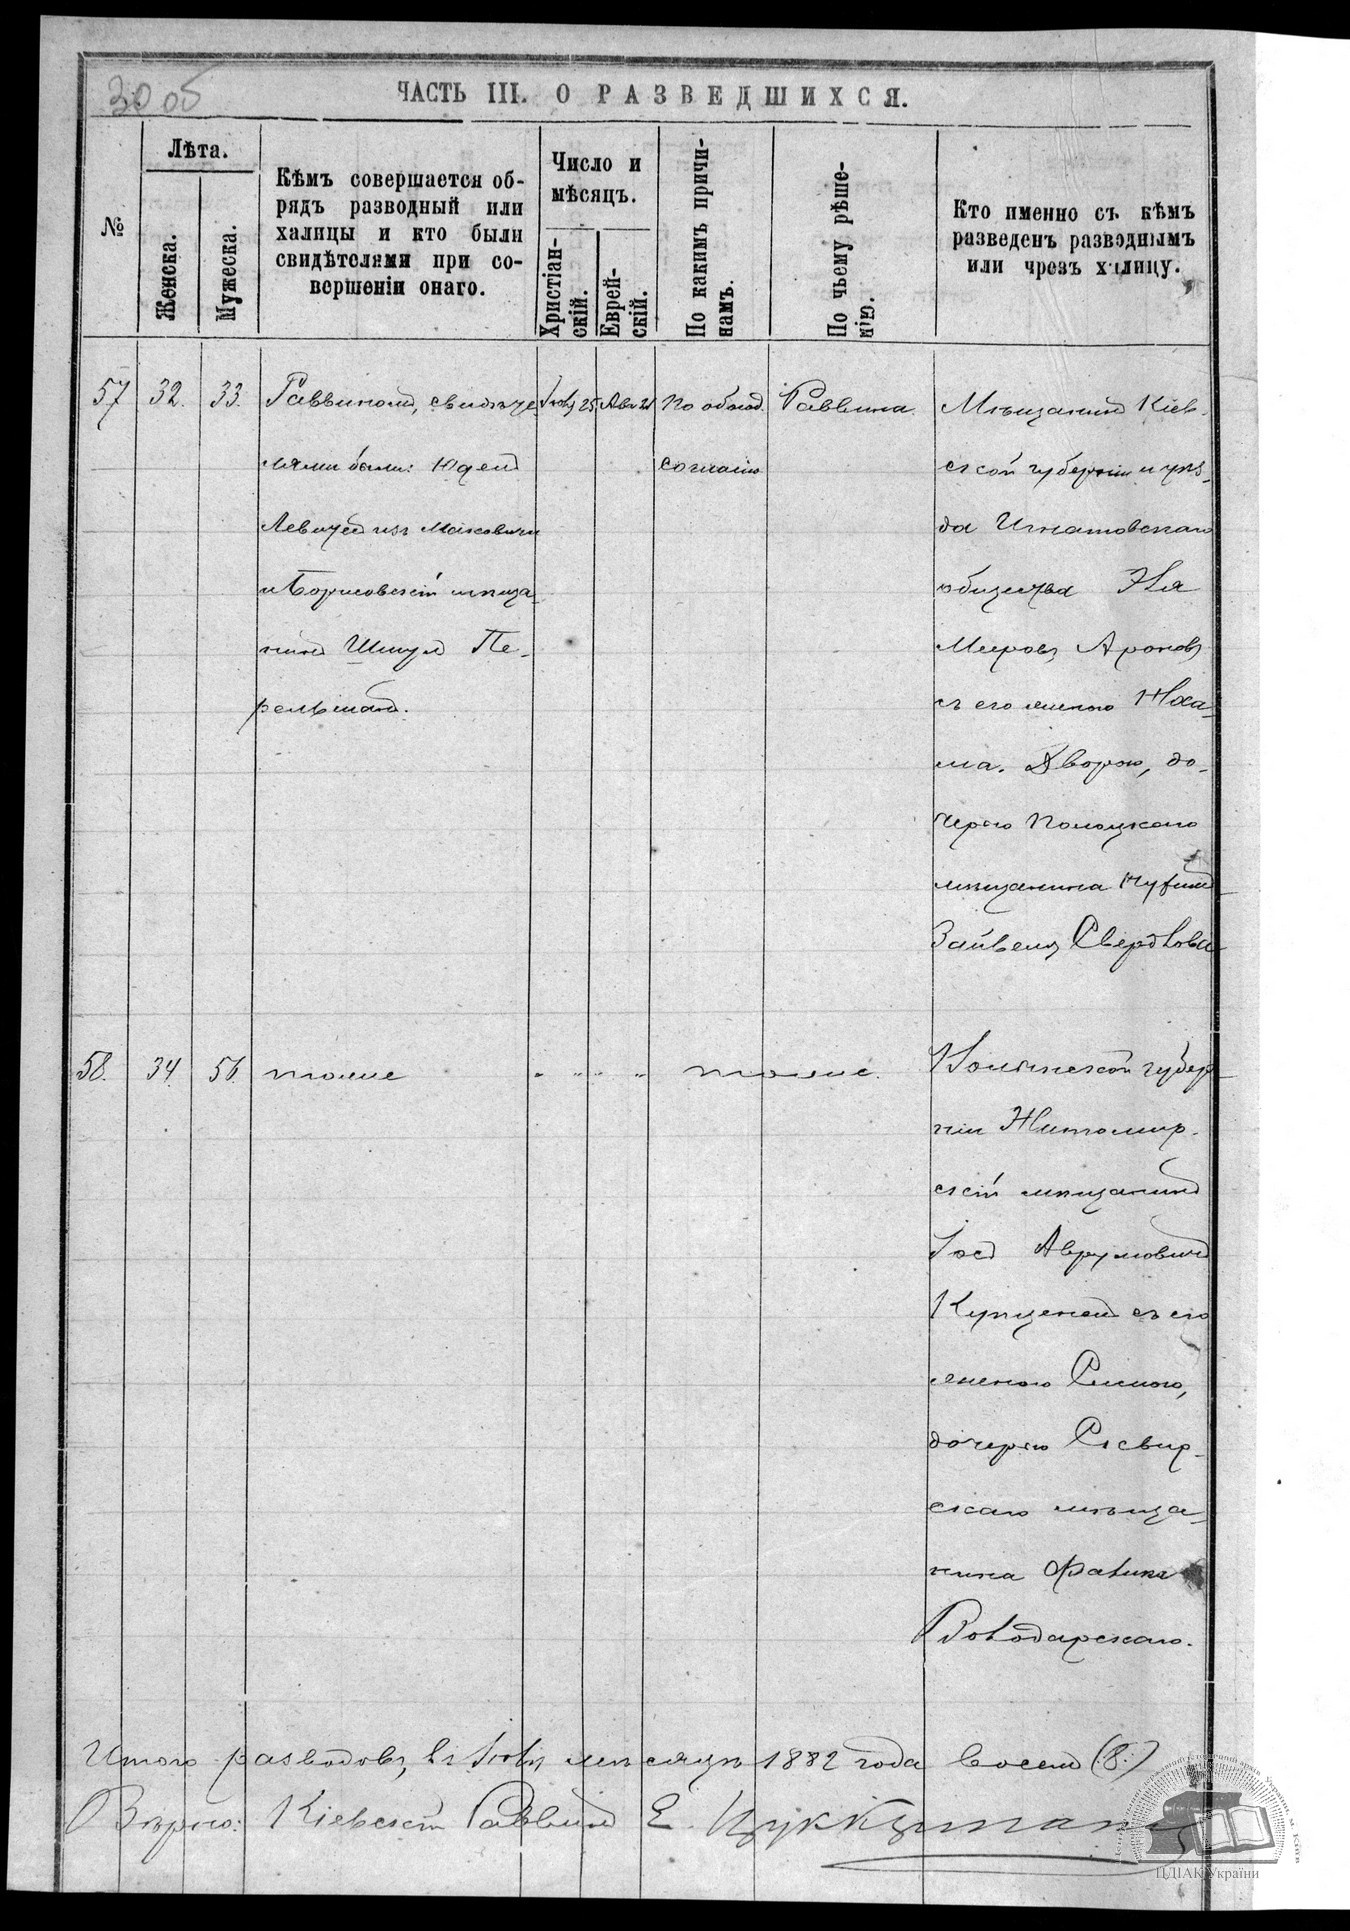 30 об
ЧАСТЬ III. О РАЗВЕДШИХСЯ.
№
Лѣта.
Женска.
Мужеска.
Кѣмъ совершается об-
рядъ разводный или
халицы и кто были
свидѣтелями при со-
вершеніи онаго.
Число и
мѣсяцъ.
Христіан-
скій.
Еврей-
скій.
По какимъ причи-
намъ.
По чьему рѣше-
нію.
Кто именно съ кѣмъ
разведенъ разводнымъ
или чрезъ халицу.
57 32. 33.
Раввиномъ, свидѣте-
лями были:
и Борисовскій мѣща-
нинъ Шмуль Пе-
рельманъ.
Іюль 25 Авъ 21
По обоюд.
согласію
Раввина.
Мѣщанинъ Кіев-
ской губерніи и уѣз-
да Игнатовскаго
общества Эля
Мееровъ Ароновъ
съ его женою Неха-
ма. Дворою, до-
черью Полоцкаго
мѣщанина
Зайвеля Свердлова
58. 34. 56. тоже " " " " тоже.
Волынской губер-
ніи Житомир-
скій мѣщанинъ
Іосъ Аврумовичъ
Купценъ съ его
женою Симою,
дочерью Сквир-
скаго мѣща-
нина
Володарскаго.
Итого разводовъ, въ Іюлѣ мѣсяцѣ 1882 года восемь (8.)
Вѣрно: Кіевскій Раввинъ Е. Цуккерманъ
ЦДІАК України